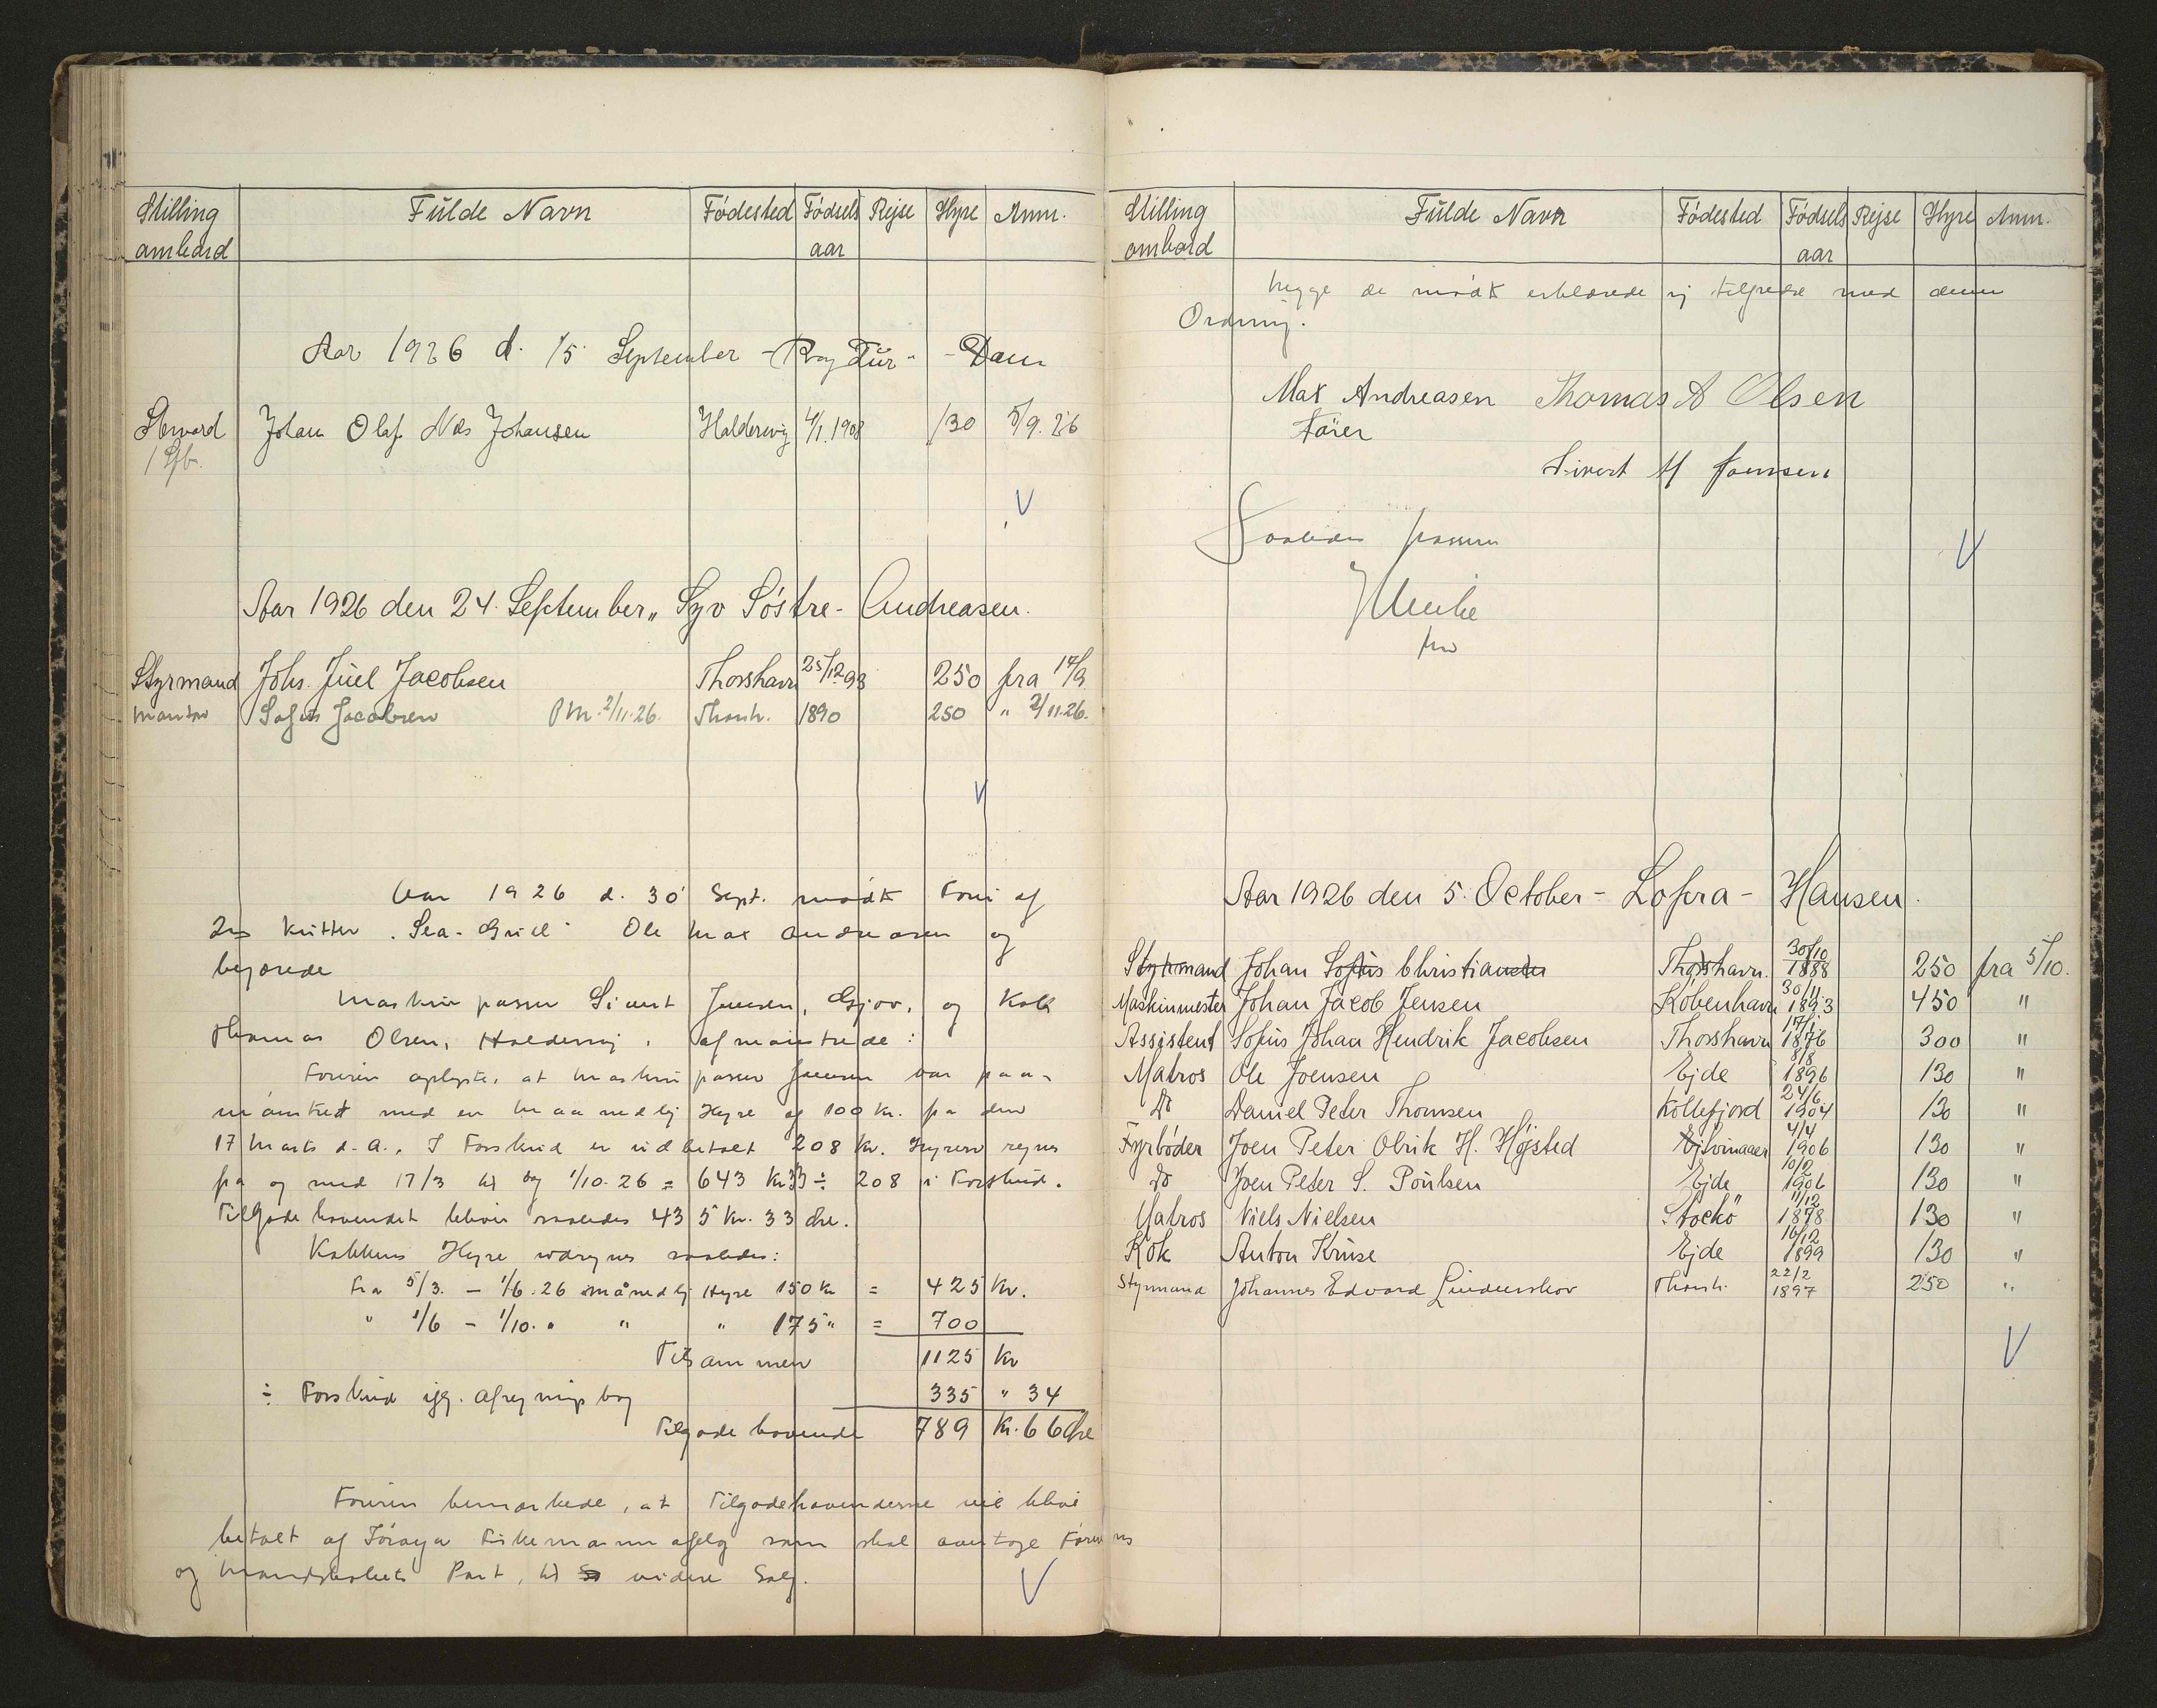 Stilling Fulde Navn Fødested Fødsels Rejse Hyre Anm.
ombord aar
Aar 1926 d. 15. September - Dam
Steward Johan Olaf Nils Johansen Haldervig 4/1.1908 130 5/9.26
Aar 1926 den 24. September „ Syv Søstre - Andreasen.
Styrmand Johs. Juel Jacobsen Thorshavn 25/12 98 250 fra 17/9
Sofus Jacobsen 2/11.26. Thorsh. 1890 250 " 2/11.26.
Aar 1926 d. 30 Sept. mødt af
Kutter Ole Max Andreasen og
begærede
Maskinpasser Sivert Joensen, Gjov, og Kok
Thomas Olsen, Haldervig, afmønstrede:
Føreren oplyste, at Maskinpasser Joensen var paa-
mønstret med en maanedlig Hyre af 100 Kr. fra den
17 Marts d. A., I Forskud er udbetalt 208 Kr. Hyren regnes
fra og med 17/3 til og 1/10.26 = 643 Kr 33 ÷ 208 i Forskud.
Tilgodehavendet bliver saaledes 435 Kr. 33 Øre.
Kokkens Hyre udregnes saaledes:
Fra 5/3. - 1/6.26 månedlig Hyre 150 Kr = 425 Kr.
" 1/6 - 1/10. " " " 175 " = 700
Tilsammen 1125 Kr
÷ Forskud ifg. Afregningsbog 335 " 34
Tilgodehavende 789 Kr. 66 Øre
Føreren bemærkede, at Tilgodehavenderne vil blive
betalt af som skal overtage Førerens
og Mandskabets Part, til videre Salg.
Stilling Fulde Navn Fødested Fødsels Rejse Hyre Anm.
ombord aar
begge de mødte erklærede sig tilfredse med denne
Ordning.
Max Andreasen Thomas A Olsen
Fører
Sivert H Joensen
Saaledes passeret
Aar 1926 den 5. October - Lopra - Hansen.
Styrmand Johan Sofus Christiansen Thorshavn. 30/10 1888 250 fra 5/10.
Maskinmester Johan Jacob Jensen København 30/11 1893 450 "
Assistent Sofus Johan Hendrik Jacobsen Thorshavn 17/1 1876 300 "
Matros Ole Joensen Ejde 8/8 1896 130 "
Do Daniel Peter Thomsen Kollefjord 24/6 1904 130 "
Fyrbøder Joen Peter Olrik H. Højsted 4/4 1906 130 "
Do Joen Peter S. Poulsen Ejde 10/2 1906 130 "
Matros Niels Nielsen 11/12 1878 130 "
Kok Anton Kruse Ejde 16/12 1899 130 "
Styrmand Johannes Edvard Lindenskov Thorsh. 22/2 1897 250 "